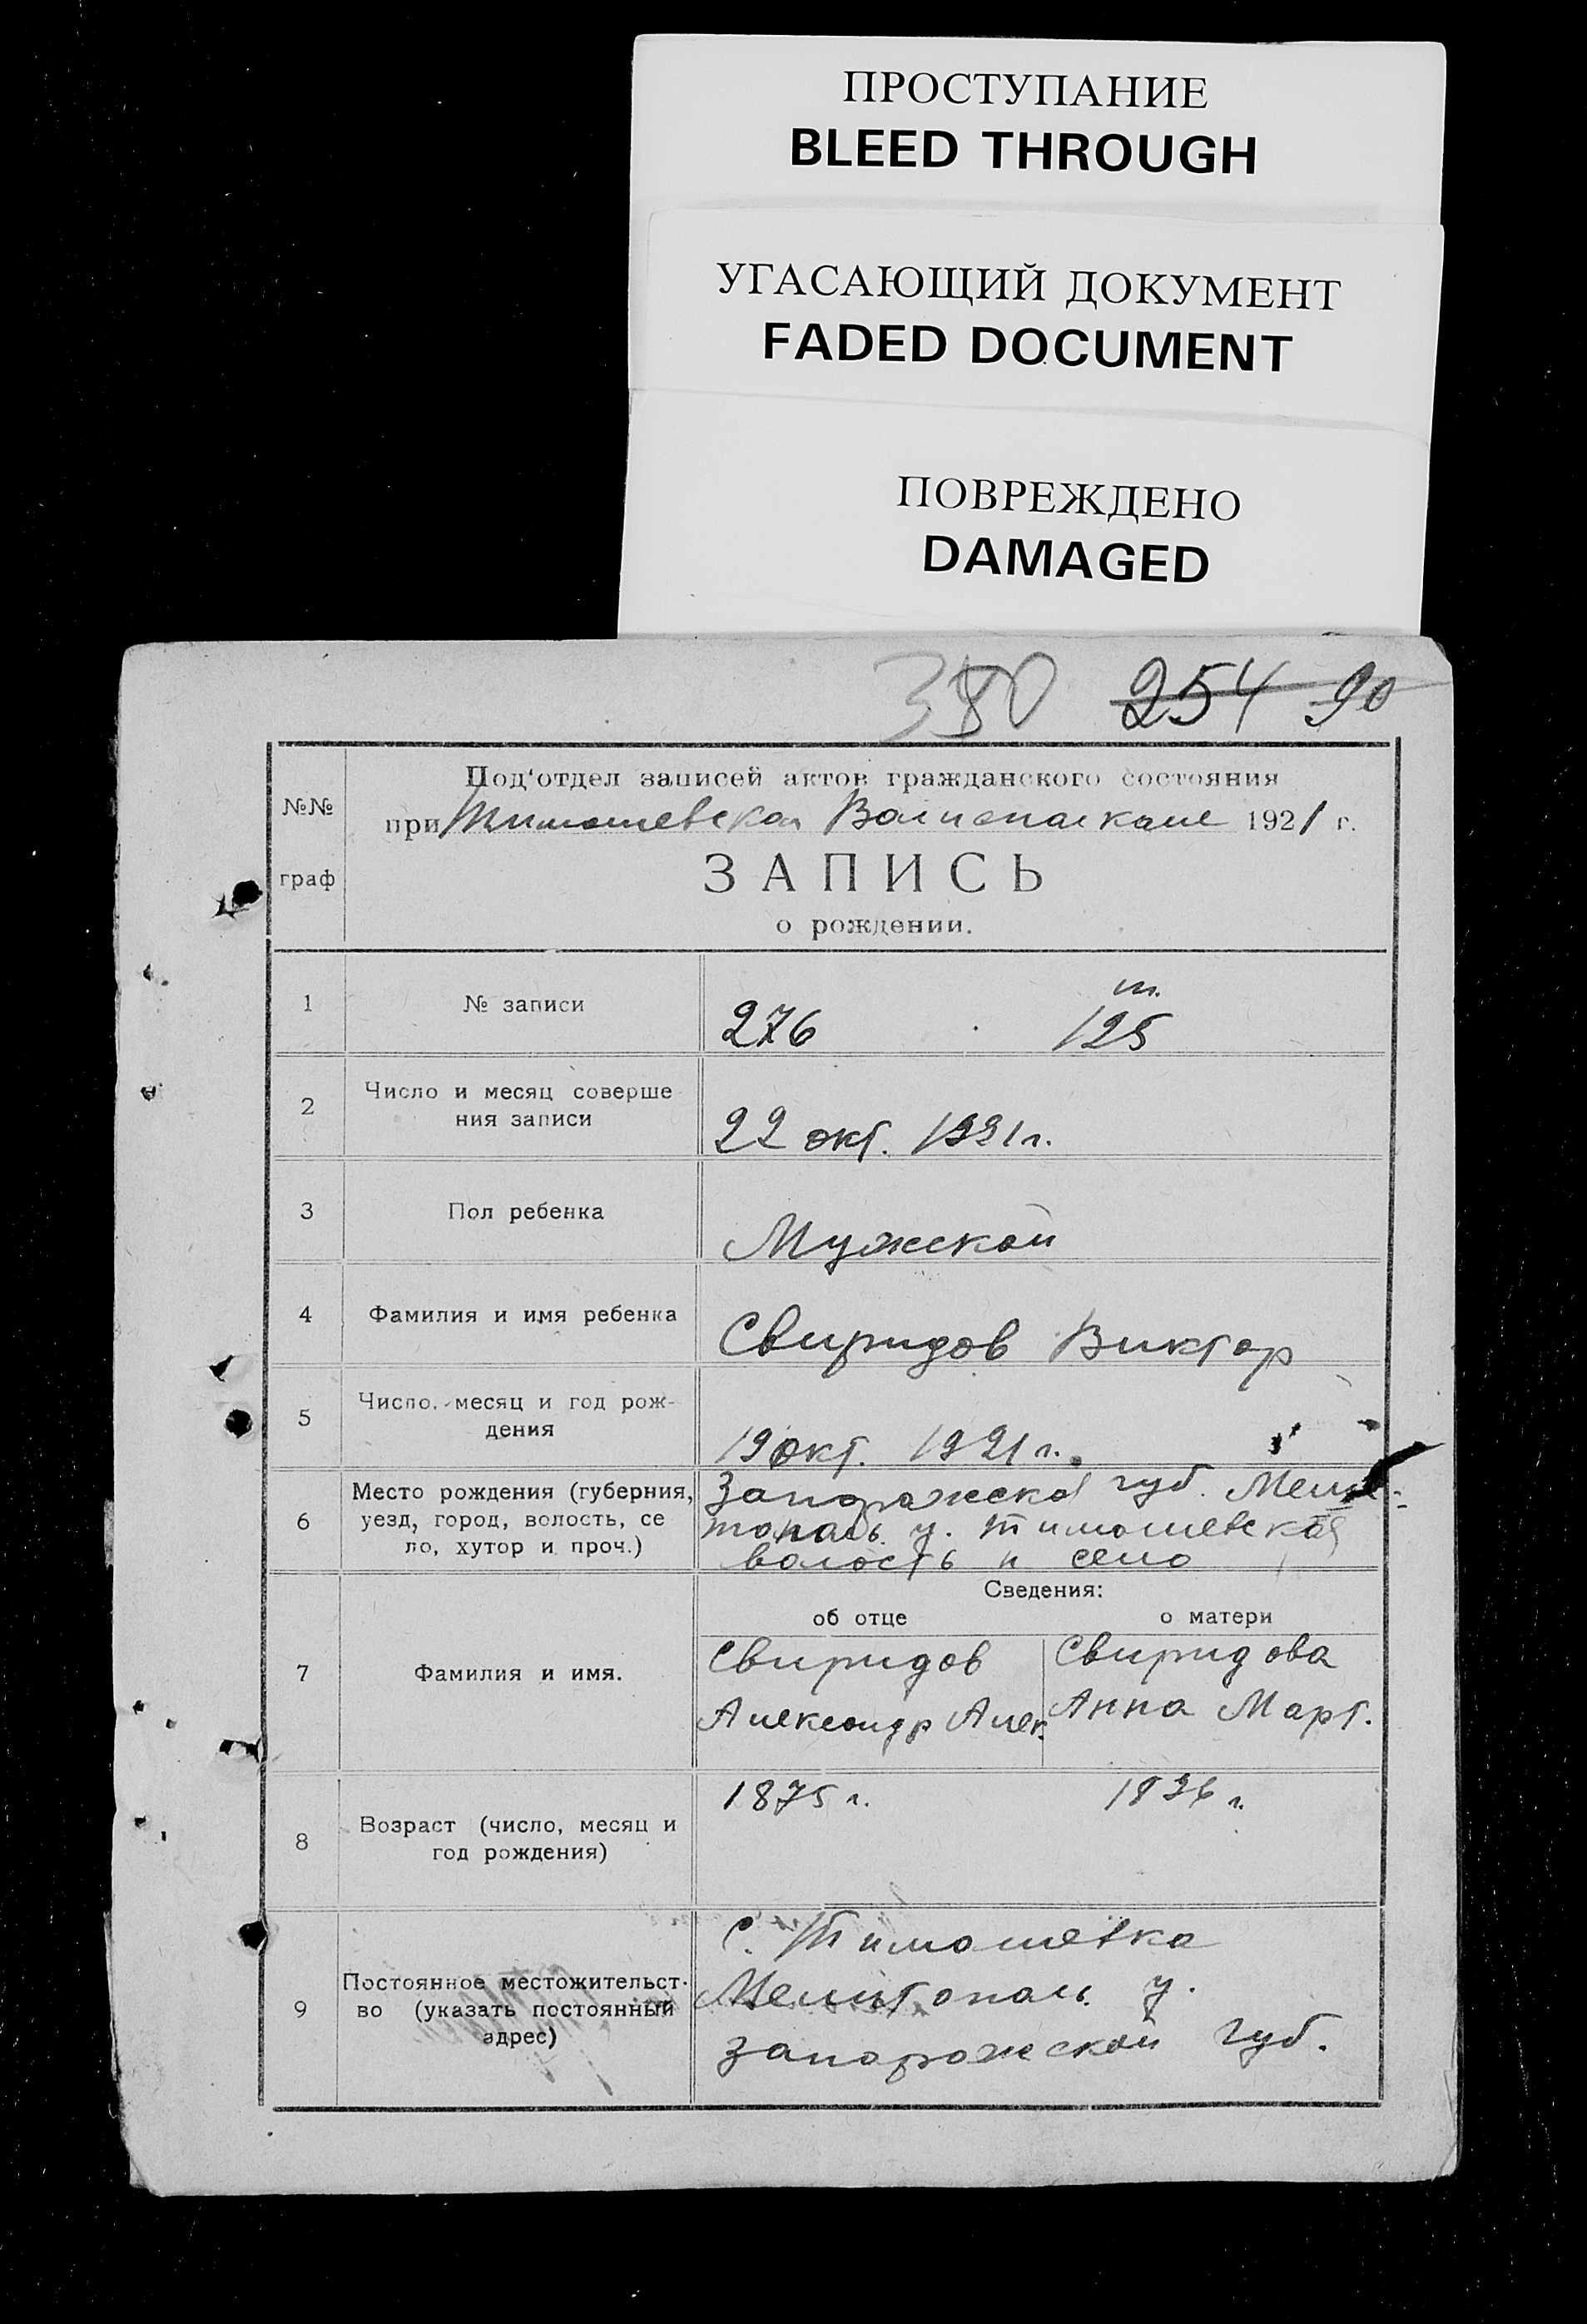 ПРОСТУПАНИЕ
BLEED THROUGH
УГАСАЮЩИЙ ДОКУМЕНТ
FADED DOCUMENT
ПОВРЕЖДЕНО
DAMAGED
380 254 90
№№
граф
Под'отдел записей актов гражданского состояния
при Тимошевском Волисполкоме 1921 г.
ЗАПИСЬ
о рождении.
1 № записи 276 м. 125
2 Число и месяц соверше
ния записи 22 окт. 1921 г.
3 Пол ребенка Мужской
4 Фамилия и имя ребенка Свиридов Виктор
5 Число, месяц и год рож-
дения 19 окт. 1921 г.
6 Место рождения (губерния,
уезд, город, волость, се
ло, хутор и проч.)
Запорожской губ. Мели-
тополь. у. Тимошевская
волость и село
Сведения:
об отце о матери
7 Фамилия и имя.
Свиридов Свиридова
Александр Алек. Анна Март.
8 Возраст (число, месяц и
год рождения)
1875 г.
9 Постоянное местожительст-
во (указать постоянный
адрес)
с. Тимошевка
Мелитополь. у.
Запорожской губ.